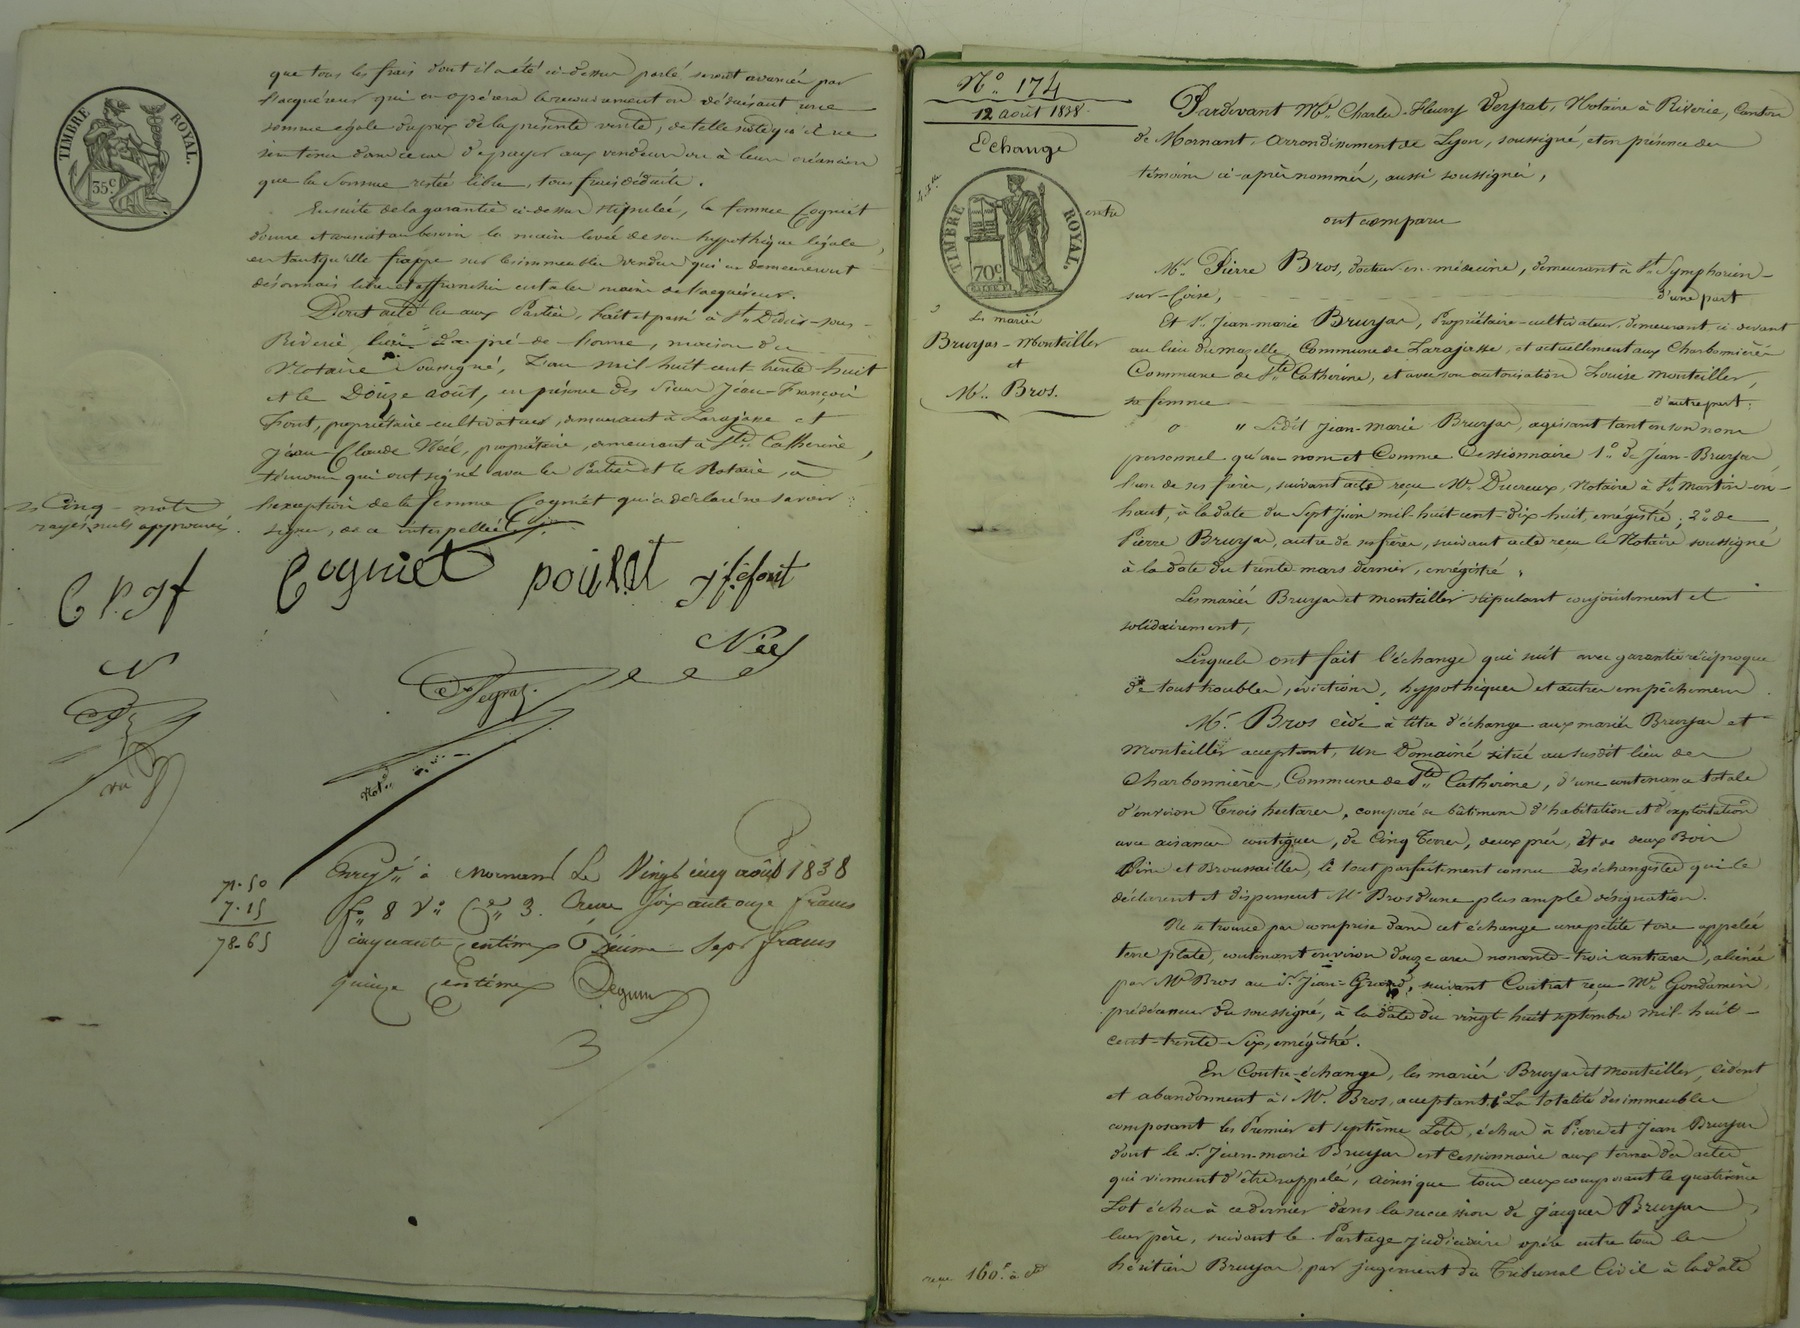 que tous les frais dont il a été ci-dessus parlé seront avancés par
l'acquéreur qui en opérera le recouvrement en déduisant une
somme égale du prix de la présente vente, de telle sorte qu'il ne
sera tenu de payer aux vendeurs ou à leurs créanciers
que la somme restée libre, tous frais déduits.
Ensuite de la garantie ci-dessus stipulée, la femme Cogniet
donne et consent au besoin la main levée de son hypothèque légale,
en tant qu'elle frappe sur les immeubles vendus qui en demeureront
désormais libres et affranchis entre les mains de l'acquéreur.
Dont acte lu aux Parties, fait et passé à St. Didier-sous-
Riverie, pré-de-Lorme, maison du
Notaire soussigné, L'an mil huit cent trente huit
et le Douze août, en présence des Sieurs Jean-François
Font, propriétaire-cultivateur, demeurant à Larajasse et
Jean-Claude Néel, propriétaire, demeurant à Ste Catherine,
témoins qui ont signé avec les Parties et le Notaire, à
l'exception de la femme Cogniet qui a déclaré ne savoir
signer, de ce interpellée.
Cinq mots
rayés nuls approuvés.
C P Jf
N
Cogniet poulat Jf font
Néel
Deyrat
Not.
TIMBRE ROYAL.
35c
71.50
7.15
78.65
Enregté à Mornant Le Vingt cinq août 1838
fo 8 Vo Ce 3. Reçu soixante onze francs
cinquante centimes Décime sept francs
quinze centimes
3
No. 174
12 août 1838
Echange
TIMBRE ROYAL.
70c
entre
Les mariés
Bruyas-Monteiller
et
Mr. Bros.
Pardevant Me. Charles-Fleury Deyrat, Notaire à Riverie, Canton
de Mornant, Arrondissement de Lyon, soussigné, et en présence des
témoins ci-après nommés, aussi soussignés,
ont comparu
Mr. Pierre Bros, docteur-en-médecine, demeurant à St. Symphorien-
sur-Coise, d'une part
Et Sr. Jean-marie Bruyas, Propriétaire-cultivateur, demeurant ci-devant
au lieu du mazelle, Commune de Larajasse, et actuellement aux Charbonnières
Commune de Ste Catherine, et avec son autorisation Louise Monteiller,
sa femme d'autre part.
Ledit Jean-Marie Bruyas, agissant tant en son nom
personnel qu'au nom et Comme Cessionnaire 1o. de Jean-Bruyas
l'un de ses frères, suivant acte reçu Me. Ducreux, Notaire à St. Martin-en-
haut, à la date du sept Juin mil-huit cent-dix-huit, enregistré, 2o. de
Pierre Bruyas, autre de ses frères, suivant acte reçu le Notaire soussigné
à la date du trente mars dernier, enregistré.
Les mariés Bruyas et Monteiller stipulant conjointement et
solidairement,
Lesquels ont fait l'échange qui suit avec garantie réciproque
de tout troubles, évictions, hypothèques et autres empêchemens.
Mr. Bros cède à titre d'échange aux mariés Bruyas et
Monteiller acceptant, un Domaine situé au susdit lieu des
Charbonnières, Commune de Ste Catherine, d'une contenance totale
d'environ Trois hectares, composé de bâtimens d'habitation et d'exploitation
avec aisances contigues, de Cinq Terres, deux prés, et de deux Bois
Pins et Broussailles, le tout parfaitement connu des échangistes qui le
déclarent et dispensent Mr Bros d'une plus ample désignation.
Ne se trouve pas comprise dans cet échange une petite terre appelée
terre plate, contenant environ douze ares nonante-trois centiares, aliénée
par Mr Bros au Sr. Jean-Grand, suivant Contrat reçu Me. Gondamin,
prédécesseur du soussigné, à la date du vingt-huit septembre mil-huit-
cent-trente-Six, enregistré.
En Contre-échange, les mariés Bruyas et Monteiller, cèdent
et abandonnent à Mr. Bros, acceptant, 1o La totalité des immeubles
composant les Premier et septième Lots, échus à Pierre et Jean Bruyas
dont le Sr. Jean-marie Bruyas est Cessionnaire aux termes des actes
qui viennent d'être rappelés, ainsi que tous ceux composant le quatrième
Lot échu à ce dernier dans la succession de Jacques Bruyas,
leur père, suivant le Partage judiciaire opéré entre tous les
héritiers Bruyas, par jugement du Tribunal Civil à la date